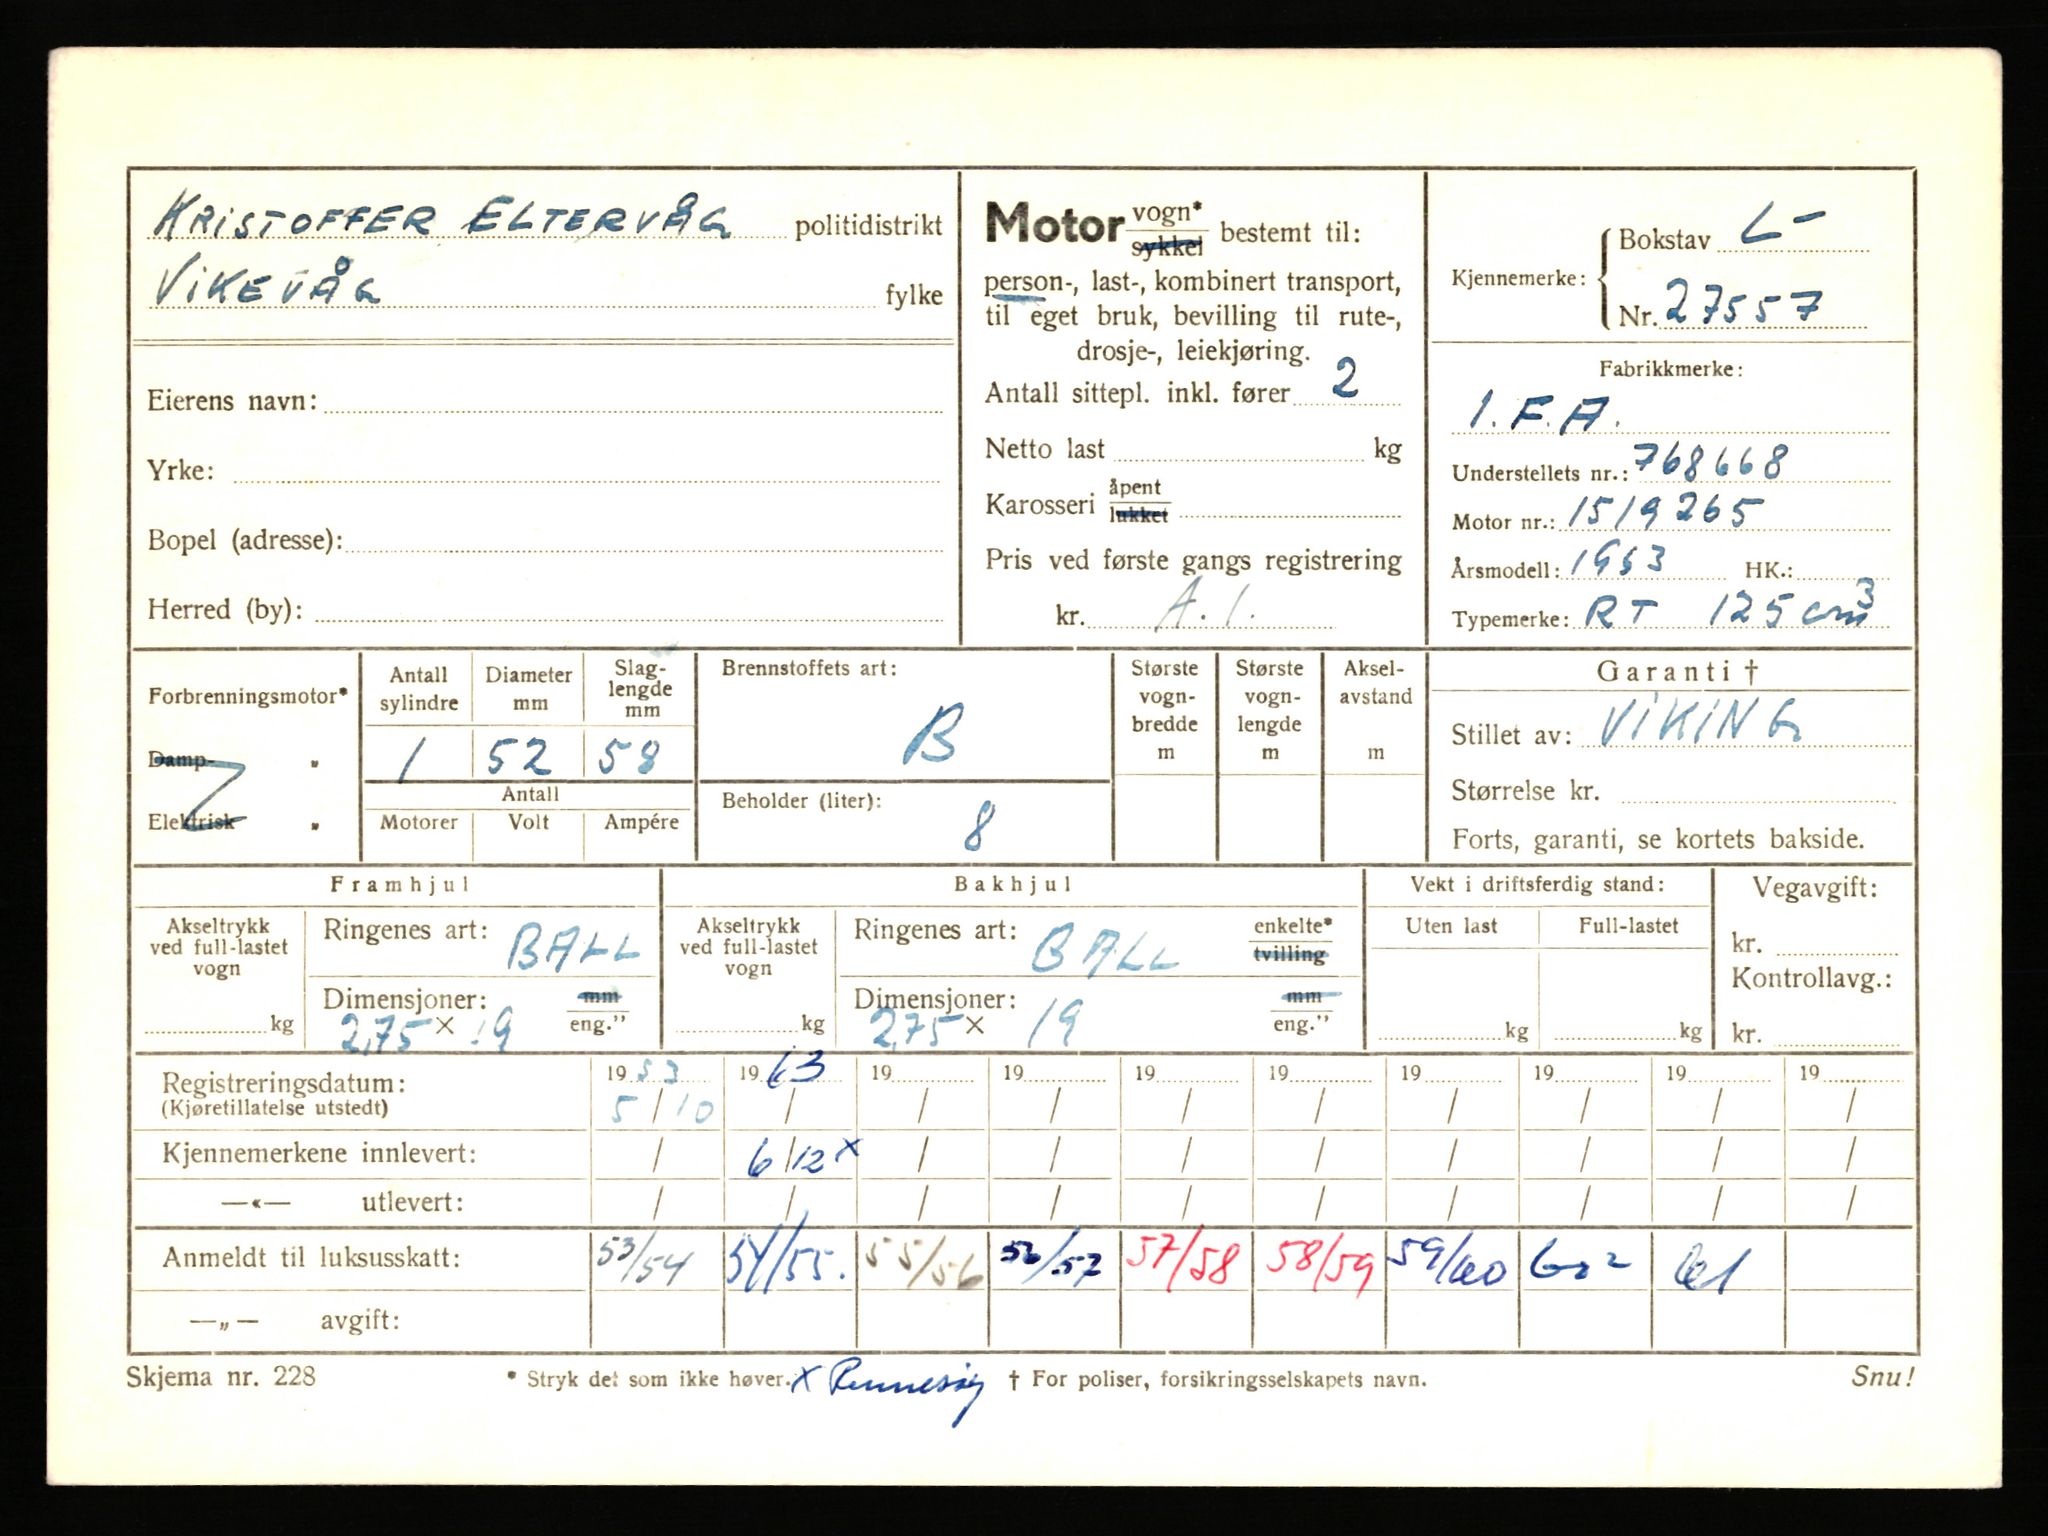 KRISTOFFER ELTERVÅG politidistrikt
VIKEVÅG fylke
Eierens navn:
Yrke:
Bopel (adresse):
Herred (by):
Motor vogn* bestemt til:
sykkel
person-, last-, kombinert transport,
til eget bruk, bevilling til rute-,
drosje-, leiekjøring.
Antall sittepl. inkl. fører 2
Netto last kg
Karosseri åpent
lukket
Pris ved første gangs registrering
kr. A.1.
Kjennemerke: Bokstav L-
Nr. 27557
Fabrikkmerke:
I.F.A.
Understellets nr.: 768668
Motor nr.: 1519265
Årsmodell: 1953 HK.:
Typemerke: RT 125 cm3
Forbrenningsmotor*
Damp- "
Elektrisk "
Antall sylindre
Diameter mm
Slag-lengde mm
1 52 58
Antall
Motorer Volt Ampére
Brennstoffets art:
B
Beholder (liter):
8
Største vogn-bredde m
Største vogn-lengde m
Aksel-avstand m
Garanti †
Stillet av: VIKING
Størrelse kr.
Forts, garanti, se kortets bakside.
Framhjul
Akseltrykk
ved full-lastet
vogn
kg
Ringenes art: BALL
Dimensjoner: mm
2,75 x 19 eng."
Bakhjul
Akseltrykk
ved full-lastet
vogn
kg
Ringenes art: BALL enkelte*
tvilling
Dimensjoner: mm
2,75 x 19 eng."
Vekt i driftsferdig stand:
Uten last Full-lastet
kg kg
Vegavgift:
kr.
Kontrollavg.:
kr.
Registreringsdatum: 1953 1963 19 19 19 19 19 19 19 19
(Kjøretillatelse utstedt) 5/10 / / / / / / / / /
Kjennemerkene innlevert: / 6/12 x / / / / / / / /
—«— utlevert: / / / / / / / / / /
Anmeldt til luksusskatt: 53/54 54/55. 55/56 56/57 57/58 58/59 59/60 60 2 61
—„— avgift:
Skjema nr. 228 * Stryk det som ikke høver. x Rennesøy † For poliser, forsikringsselskapets navn. Snu!